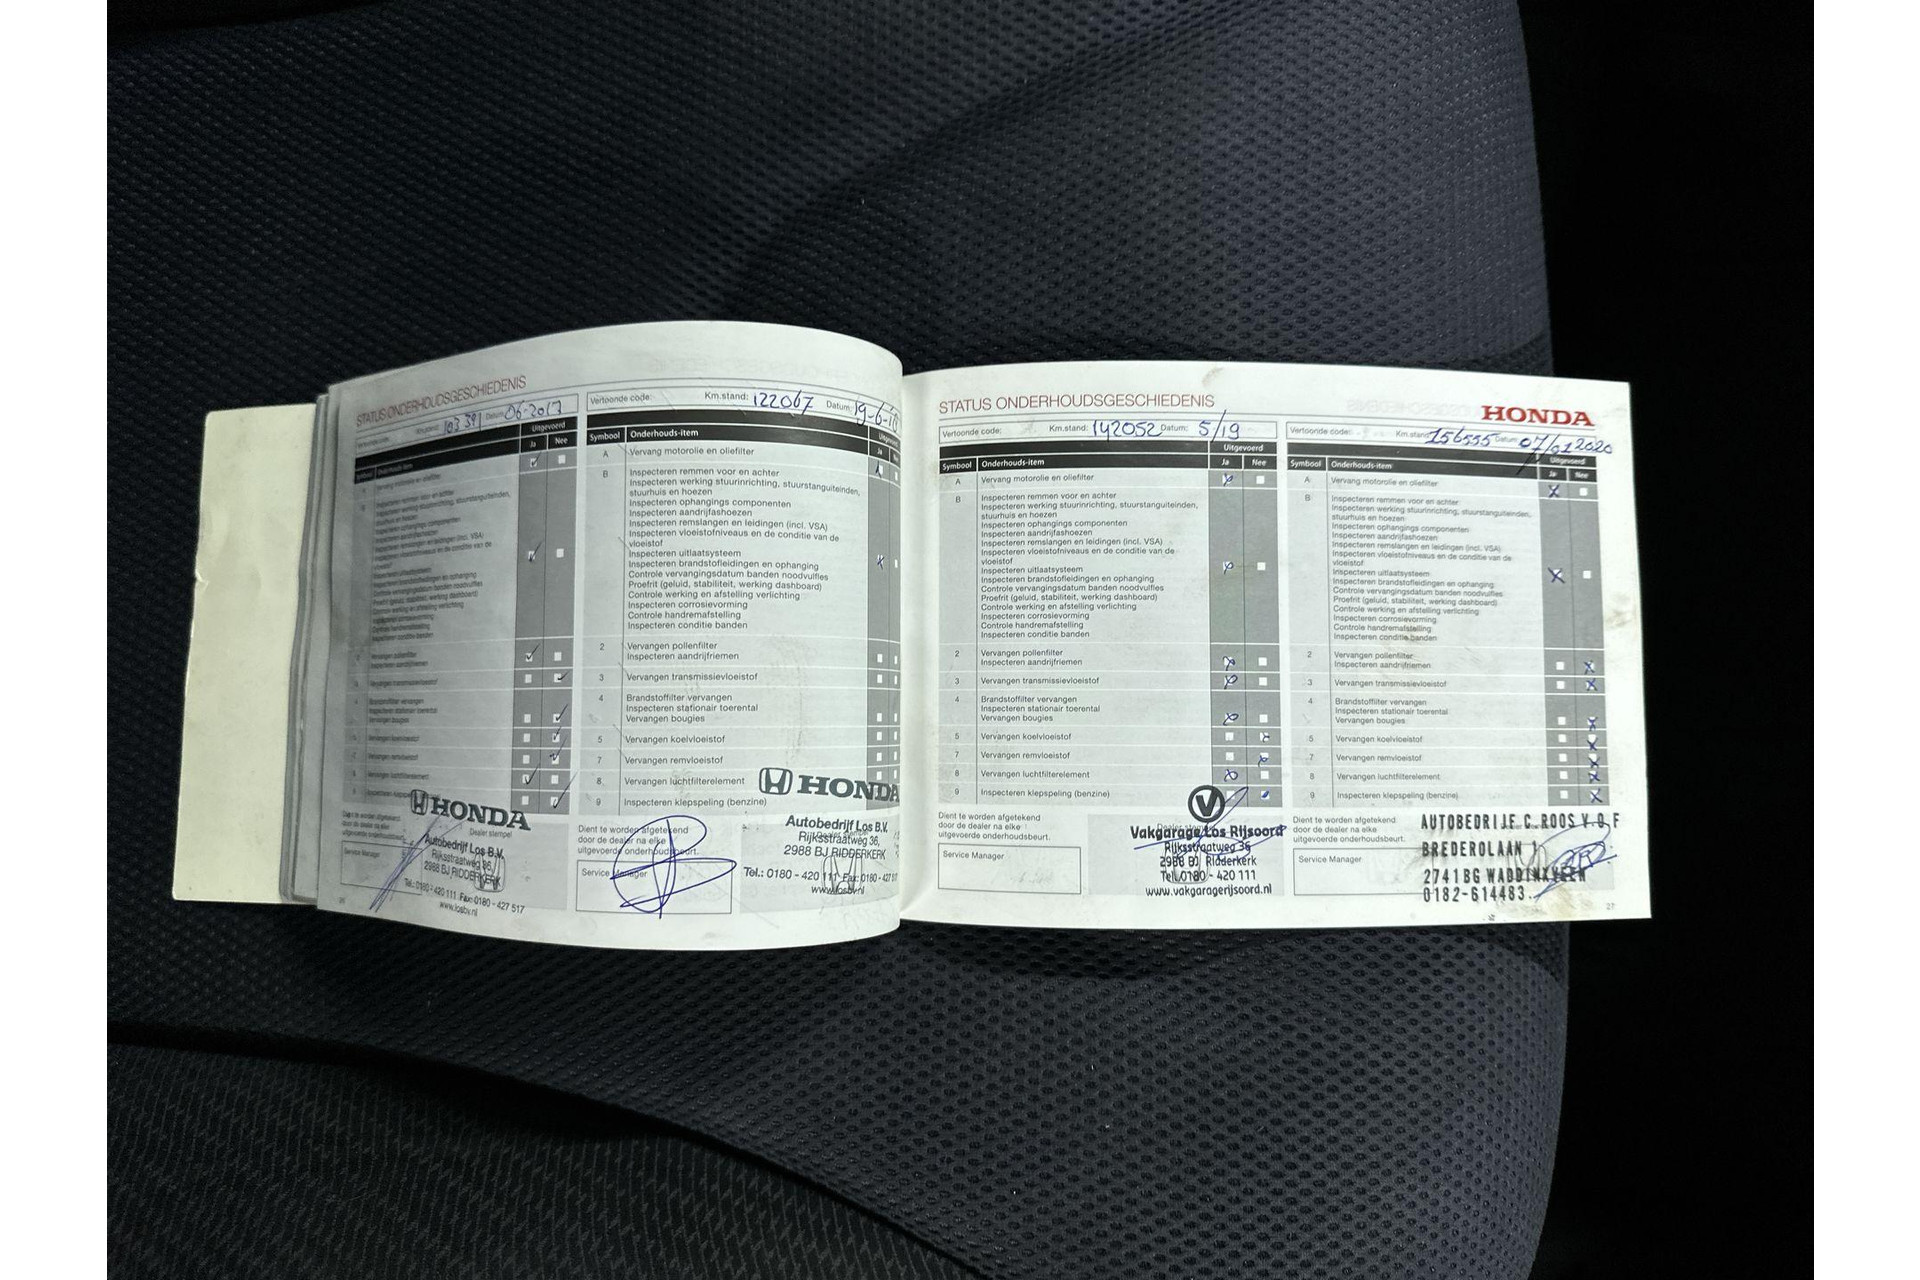 STATUS ONDERHOUDSGESCHIEDENIS
Vertoonde code: Km.stand: 103391 Datum: 06-2017
Uitgevoerd
Symbool Onderhouds-item Ja Nee
Vervang motorolie en oliefilter
B Inspecteren remmen voor en achter
Inspecteren werking stuurinrichting, stuurstanguiteinden,
stuurhuis en hoezen
Inspecteren ophangings componenten
Inspecteren aandrijfashoezen
Inspecteren remslangen en leidingen (incl. VSA)
Inspecteren vloeistofniveaus en de conditie van de
vloeistof
Inspecteren uitlaatsysteem
Inspecteren brandstofleidingen en ophanging
Controle vervangingsdatum banden noodvulfles
Proefrit (geluid, stabiliteit, werking dashboard)
Controle werking en afstelling verlichting
Inspecteren corrosievorming
Controle handremafstelling
Inspecteren conditie banden
Vervangen pollenfilter
Inspecteren aandrijfriemen
Vervangen transmissievloeistof
Brandstoffilter vervangen
Inspecteren stationair toerental
Vervangen bougies
Vervangen koelvloeistof
Vervangen remvloeistof
Vervangen luchtfilterelement
Dient te worden afgetekend
door de dealer na elke
uitgevoerde onderhoudsbeurt.
Service Manager
Dealer stempel
HONDA
Autobedrijf Los B.V.
Rijksstraatweg 36,
2988 BJ RIDDERKERK
Tel.: 0180 - 420 111 Fax: 0180 - 427 517
www.losbv.nl
Vertoonde code: Km.stand: 122067 Datum: 19-6-18
Uitgevoerd
Symbool Onderhouds-item Ja
A Vervang motorolie en oliefilter
B Inspecteren remmen voor en achter
Inspecteren werking stuurinrichting, stuurstanguiteinden,
stuurhuis en hoezen
Inspecteren ophangings componenten
Inspecteren aandrijfashoezen
Inspecteren remslangen en leidingen (incl. VSA)
Inspecteren vloeistofniveaus en de conditie van de
vloeistof
Inspecteren uitlaatsysteem
Inspecteren brandstofleidingen en ophanging
Controle vervangingsdatum banden noodvulfles
Proefrit (geluid, stabiliteit, werking dashboard)
Controle werking en afstelling verlichting
Inspecteren corrosievorming
Controle handremafstelling
Inspecteren conditie banden
2 Vervangen pollenfilter
Inspecteren aandrijfriemen
3 Vervangen transmissievloeistof
4 Brandstoffilter vervangen
Inspecteren stationair toerental
Vervangen bougies
5 Vervangen koelvloeistof
7 Vervangen remvloeistof
8 Vervangen luchtfilterelement
9 Inspecteren klepspeling (benzine)
Dient te worden afgetekend
door de dealer na elke
uitgevoerde onderhoudsbeurt.
Service Manager
HONDA
Autobedrijf Los B.V.
Rijksstraatweg 36,
2988 BJ RIDDERKERK
Tel.: 0180 - 420 111 Fax: 0180 - 427 517
www.losbv.nl
STATUS ONDERHOUDSGESCHIEDENIS
HONDA
Vertoonde code: Km.stand: 142052 Datum: 5/19
Uitgevoerd
Symbool Onderhouds-item Ja Nee
A Vervang motorolie en oliefilter
B Inspecteren remmen voor en achter
Inspecteren werking stuurinrichting, stuurstanguiteinden,
stuurhuis en hoezen
Inspecteren ophangings componenten
Inspecteren aandrijfashoezen
Inspecteren remslangen en leidingen (incl. VSA)
Inspecteren vloeistofniveaus en de conditie van de
vloeistof
Inspecteren uitlaatsysteem
Inspecteren brandstofleidingen en ophanging
Controle vervangingsdatum banden noodvulfles
Proefrit (geluid, stabiliteit, werking dashboard)
Controle werking en afstelling verlichting
Inspecteren corrosievorming
Controle handremafstelling
Inspecteren conditie banden
2 Vervangen pollenfilter
Inspecteren aandrijfriemen
3 Vervangen transmissievloeistof
4 Brandstoffilter vervangen
Inspecteren stationair toerental
Vervangen bougies
5 Vervangen koelvloeistof
7 Vervangen remvloeistof
8 Vervangen luchtfilterelement
9 Inspecteren klepspeling (benzine)
Dient te worden afgetekend
door de dealer na elke
uitgevoerde onderhoudsbeurt.
Service Manager
V
Vakgarage Los Rijsoord
Rijksstraatweg 36
2988 BJ Ridderkerk
Tel. 0180 - 420 111
www.vakgaragerijsoord.nl
Vertoonde code: Km.stand: 156555 Datum: 07/02 2020
Uitgevoerd
Symbool Onderhouds-item Ja Nee
A Vervang motorolie en oliefilter
B Inspecteren remmen voor en achter
Inspecteren werking stuurinrichting, stuurstanguiteinden,
stuurhuis en hoezen
Inspecteren ophangings componenten
Inspecteren aandrijfashoezen
Inspecteren remslangen en leidingen (incl. VSA)
Inspecteren vloeistofniveaus en de conditie van de
vloeistof
Inspecteren uitlaatsysteem
Inspecteren brandstofleidingen en ophanging
Controle vervangingsdatum banden noodvulfles
Proefrit (geluid, stabiliteit, werking dashboard)
Controle werking en afstelling verlichting
Inspecteren corrosievorming
Controle handremafstelling
Inspecteren conditie banden
2 Vervangen pollenfilter
Inspecteren aandrijfriemen
3 Vervangen transmissievloeistof
4 Brandstoffilter vervangen
Inspecteren stationair toerental
Vervangen bougies
5 Vervangen koelvloeistof
7 Vervangen remvloeistof
8 Vervangen luchtfilterelement
9 Inspecteren klepspeling (benzine)
Dient te worden afgetekend
door de dealer na elke
uitgevoerde onderhoudsbeurt.
Service Manager
AUTOBEDRIJF C.ROOS V.O.F
BREDEROLAAN 1
2741BG WADDINXVEEN
0182-614483.
27